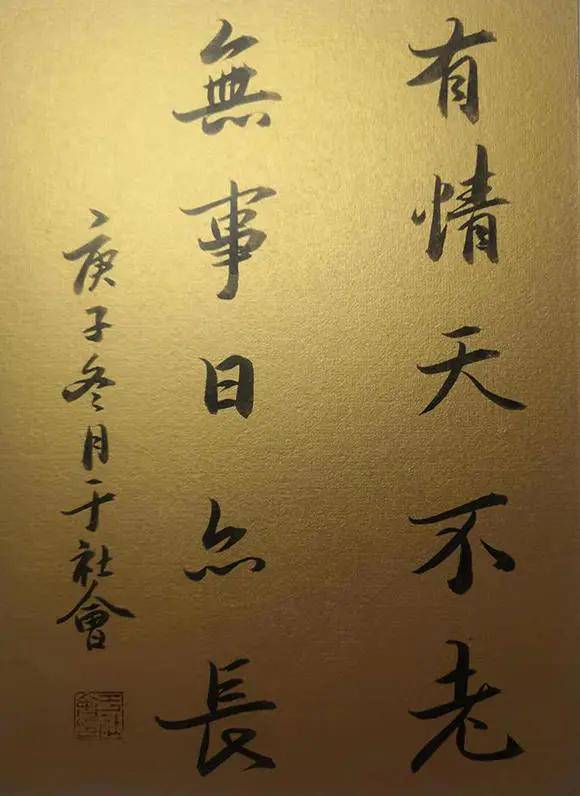 有情天不老
無事日亦長
庚子冬月于社會